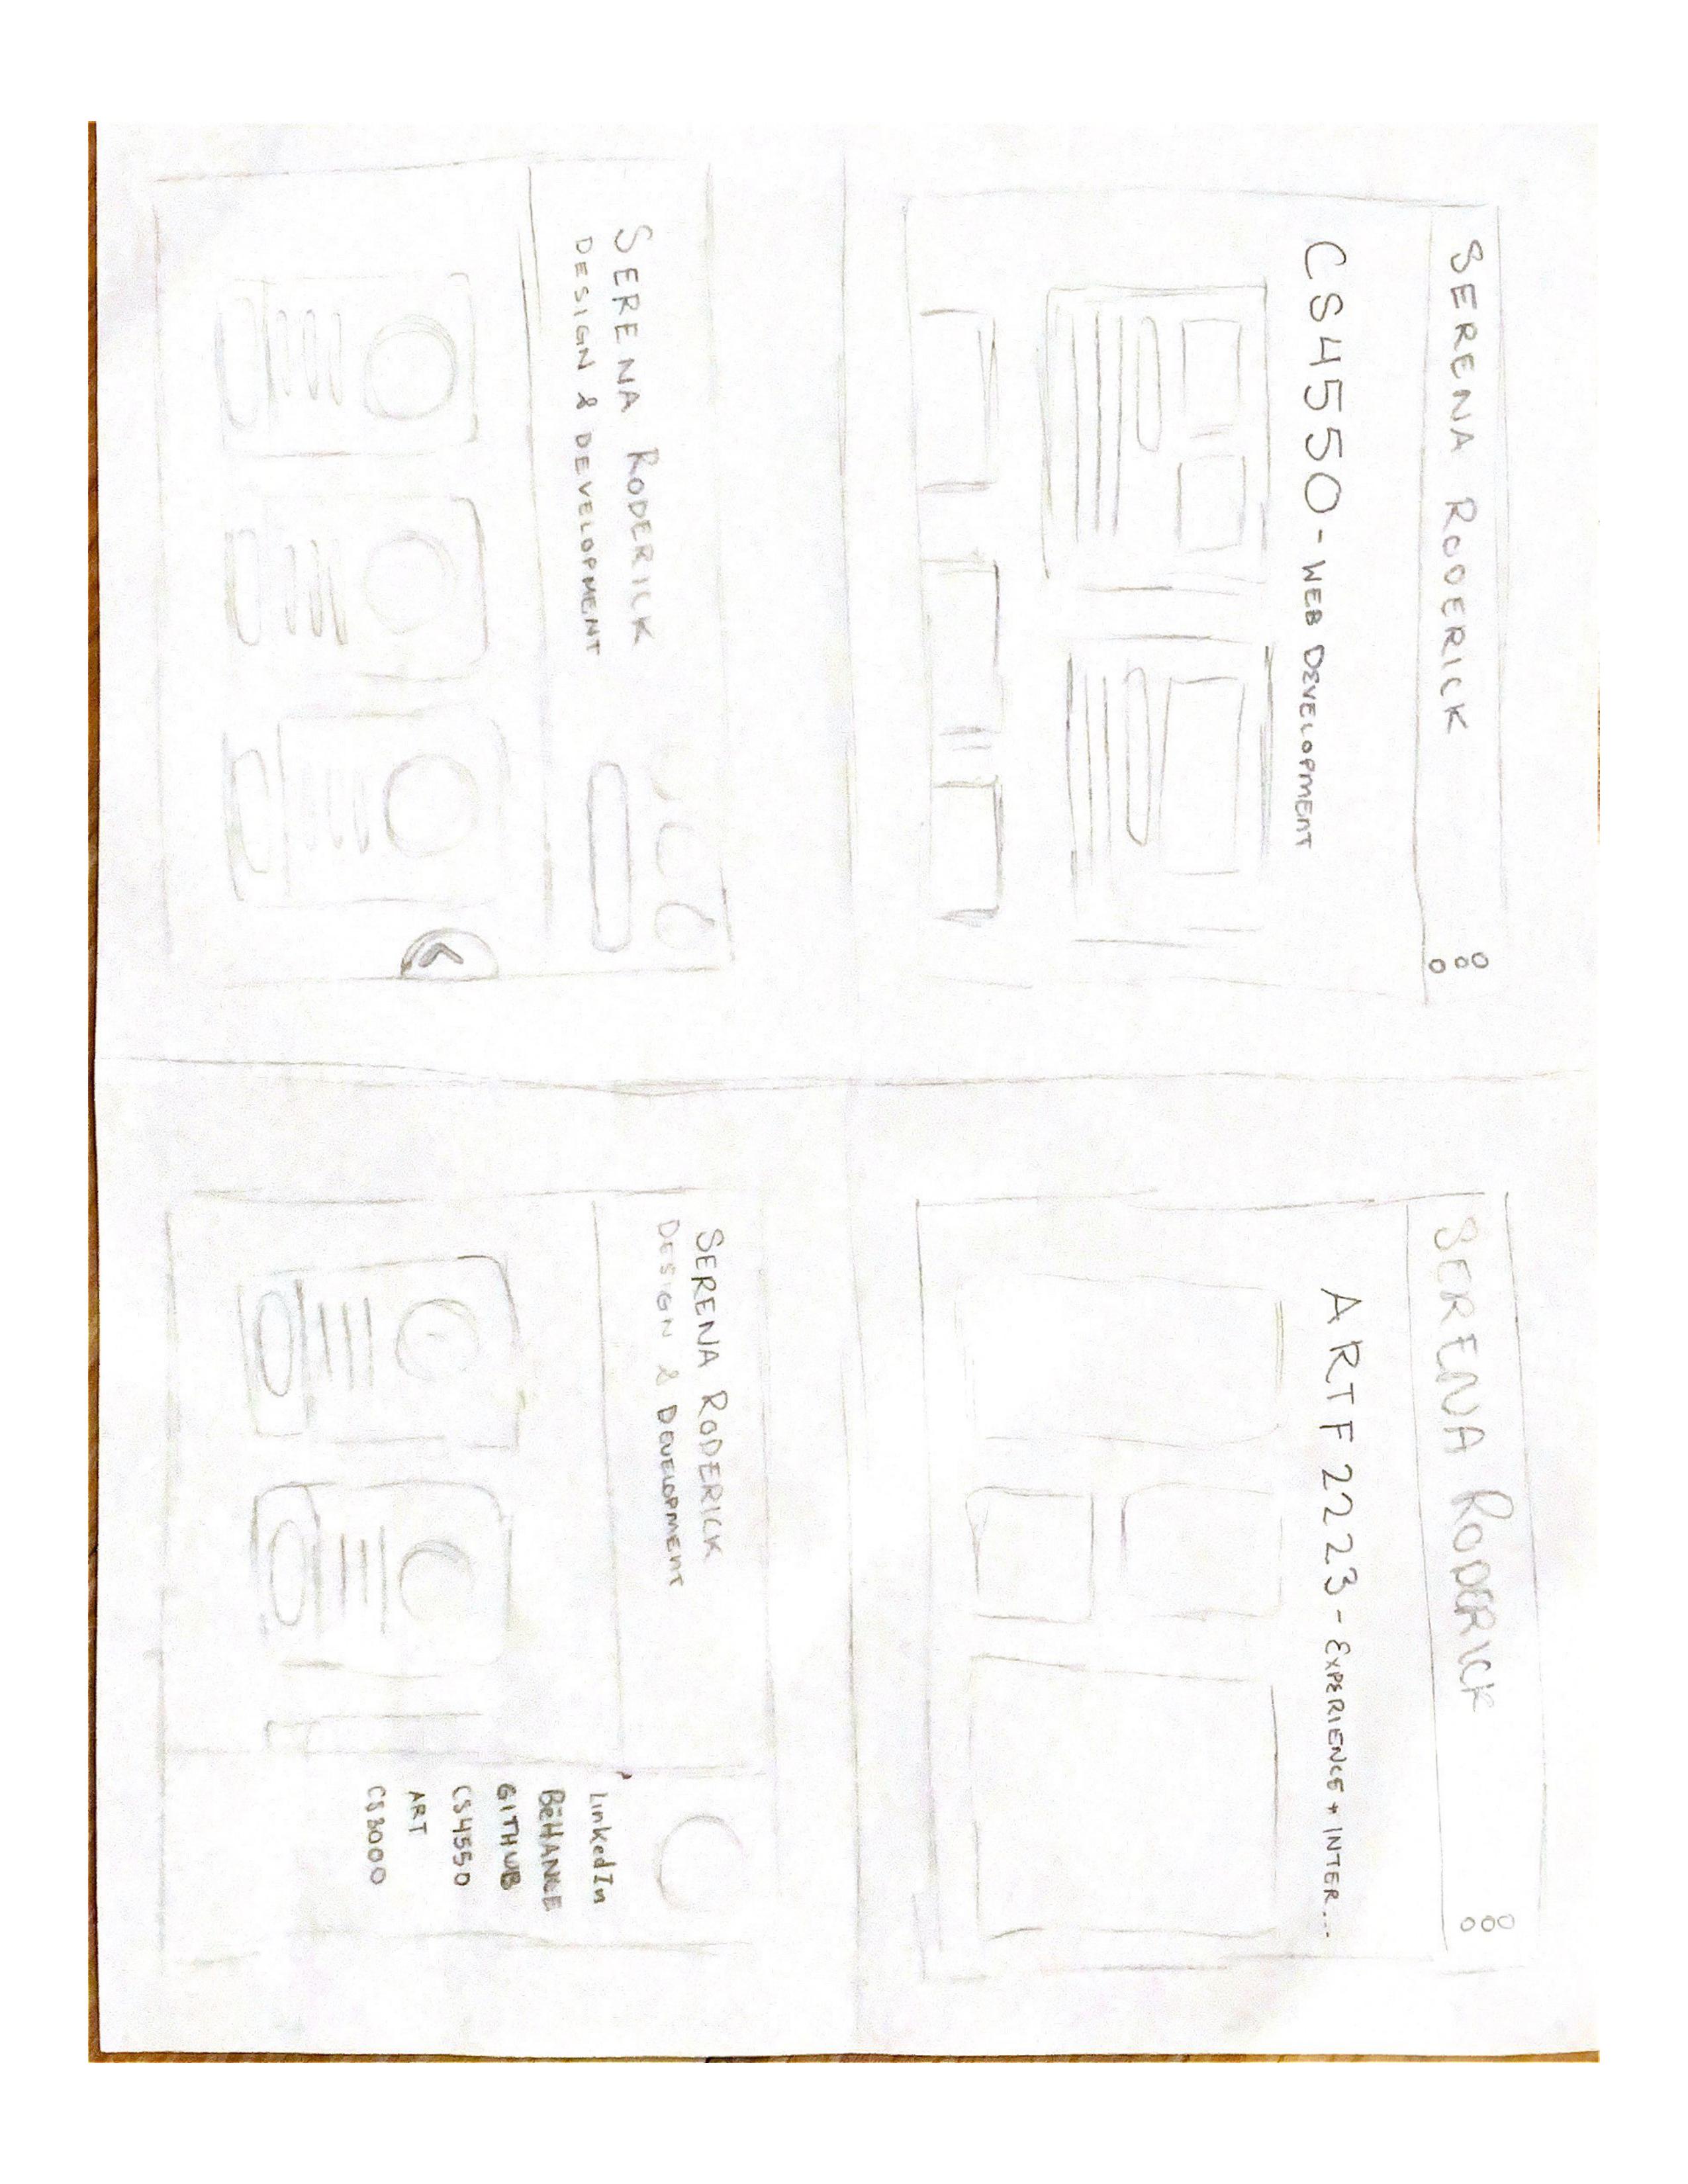 SERENA RODERICK
CS4550 - WEB DEVELOPMENT
SERENA RODERICK
ARTF 2223 - EXPERIENCE + INTER...
SERENA RODERICK
DESIGN & DEVELOPMENT
SERENA RODERICK
DESIGN & DEVELOPMENT
LinkedIn
BēHANCE
GITHUB
CS4550
ART
CS3000